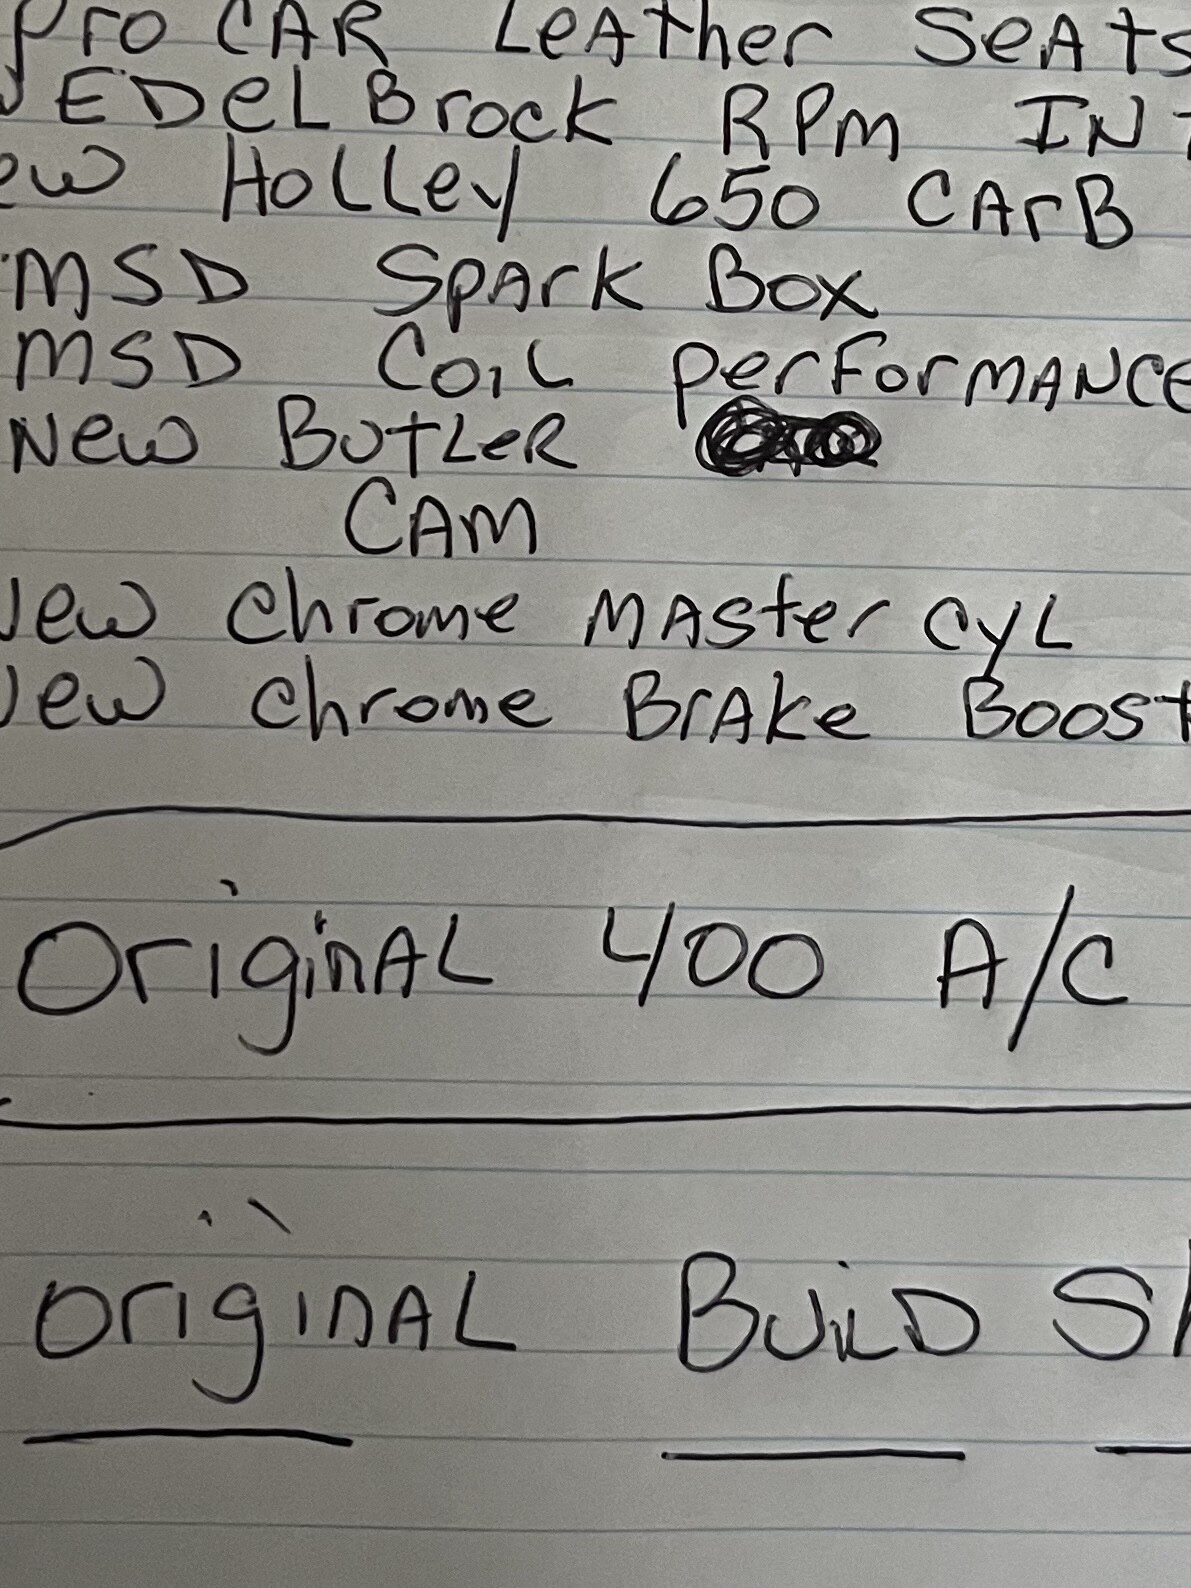 Pro CAR LeAther SeAts
EDeLBrock RPM IN
ew HoLLey 650 CArB
MSD SpArk Box
MSD CoiL PerForMANCe
New ButLeR
CAM
New Chrome MAster CyL
New Chrome BrAke Boost
OriginAL 400 A/C
OriginAL BuiLD S